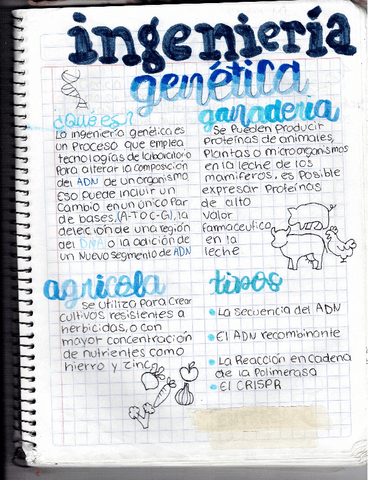 ingeniería
genética
¿Qué es?
La ingeniería genética es
un Proceso que emplea
tecnologías de laboratorio
Para alterar la composición
del ADN de un organismo
Eso puede incluir un
cambio en un único Par
de bases, (A-T o C-G), la
delección de una región
del DNA o la adición de
un Nuevo segmento de ADN
ganaderia
Se Pueden Producir
Proteínas de animales,
Plantas o microorganismos
en la leche de los
mamíferos, es Posible
expresar Proteínas
de alto
valor
farmaceutico
en la
leche
agricola
se utiliza para crear
cultivos resistentes a
herbicidas, o con
mayor concentración
de nutrientes como
hierro y zinc
tipos
• La secuencia del ADN
• El ADN recombinante
• La Reacción en Cadena
de la Polimerasa
• El CRISPR